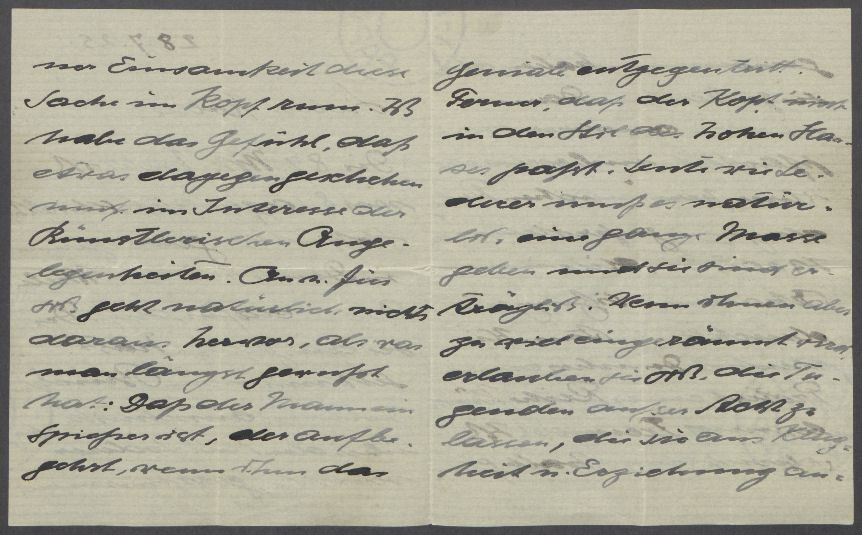 vor Einsamkeit diese
Sache im Kopf rum. Ich
habe das Gefühl, daß
etwas dagegen geschehen
muß im Interesse der
Künstlerischen Ange-
legenheiten. An u. für
sich geht natürlich nichts
daraus hervor, als was
man längst gewußt
hat: Daß der Mann ein
Spießer ist, der aufbe-
gehrt, wenn ihm das
Geniale entgegentritt.
Ferner, daß der Kopf nicht
in den Stil des hohen Hau-
ses paßt. Leute wie Le-
derer muß es natür-
lich eine ganze Masse
geben und sie sind er-
träglich. Wenn ihnen aber
zu viel eingeräumt wird,
erlauben sie sich, die Tu-
genden außer Acht zu
lassen, die sie aus Klug-
heit u. Erziehung an-
28 7. 25